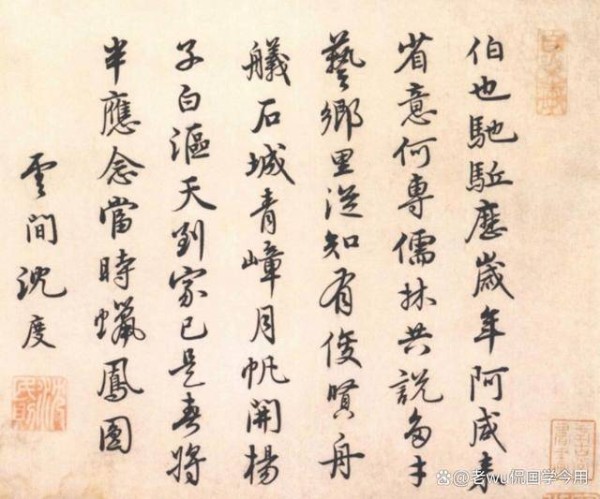 伯也馳駈歷歲年阿咸来
省意何專儒林共說多才
藝鄉里從知有俊賢舟
艤石城青嶂月帆開楊
子白漚天到家已是春將
半應念當時蠟鳳圓
雲間沈度
老wu侃国学今用